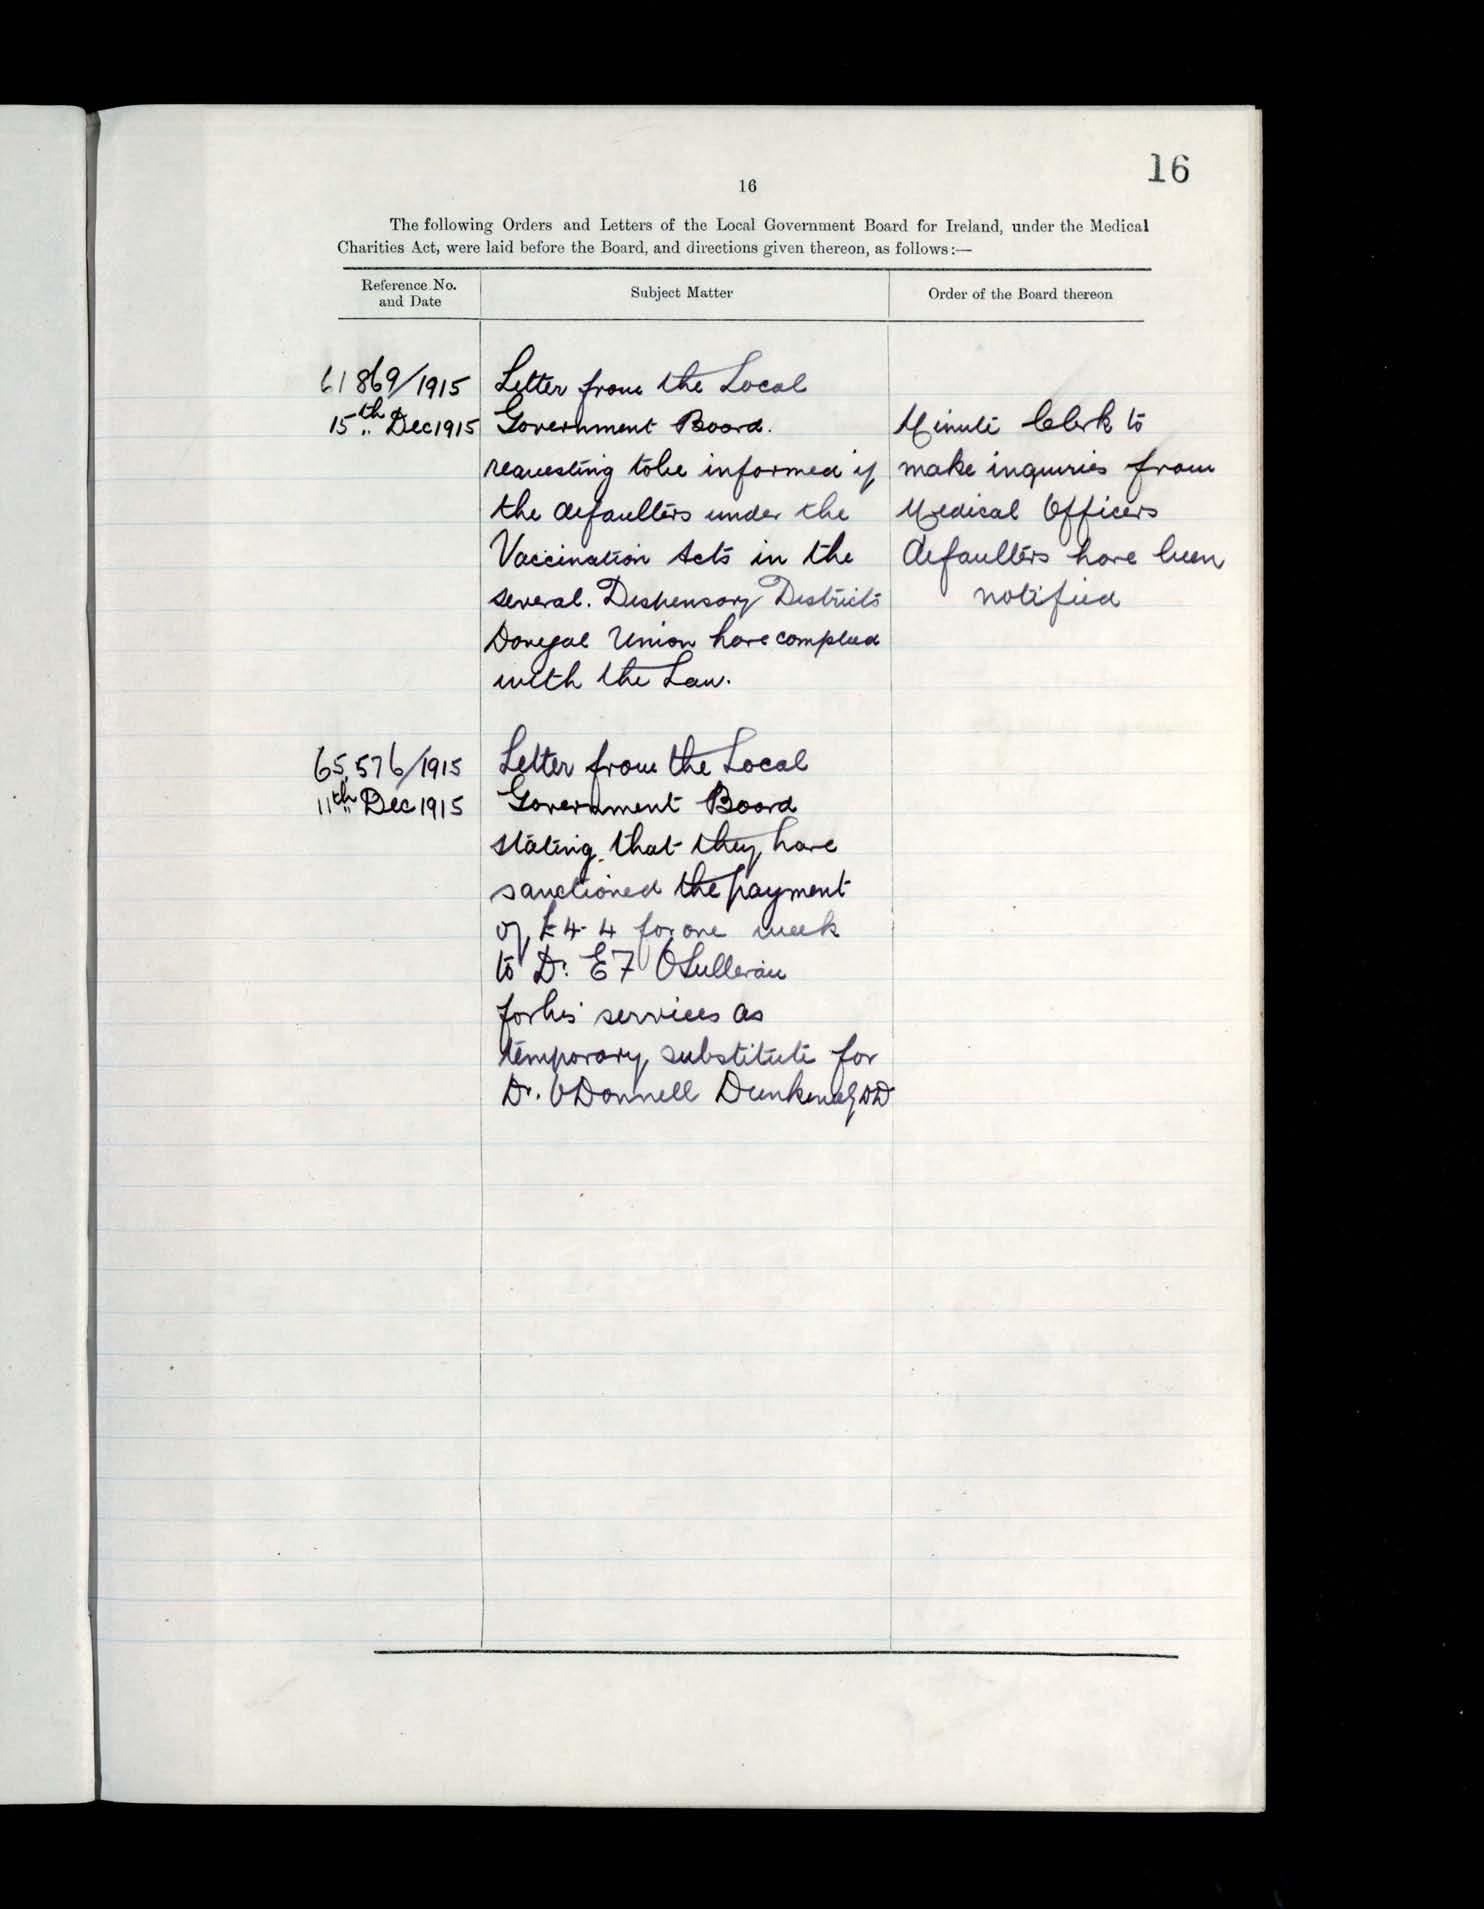 16
16
The following Orders and Letters of the Local Government Board for Ireland, under the Medical
Charities Act, were laid before the Board, and directions given thereon, as follows:—
Reference No.
and Date
Subject Matter
Order of the Board thereon
61869/1915
15th Dec 1915
Letter from the Local
Government Board.
requesting to be informed if
the defaulters under the
Vaccination Acts in the
several. Dispensary Districts
Donegal Union have complied
with the Law.
Minute Clerk to
make inquiries from
Medical Officers
defaulters have been
notified
65,576/1915
11th Dec 1915
Letter from the Local
Government Board
stating that they have
sanctioned the payment
of £4-4 for one week
to Dr. E F OSullivan
for his services as
temporary substitute for
Dr. ODonnell Dunkineely DD